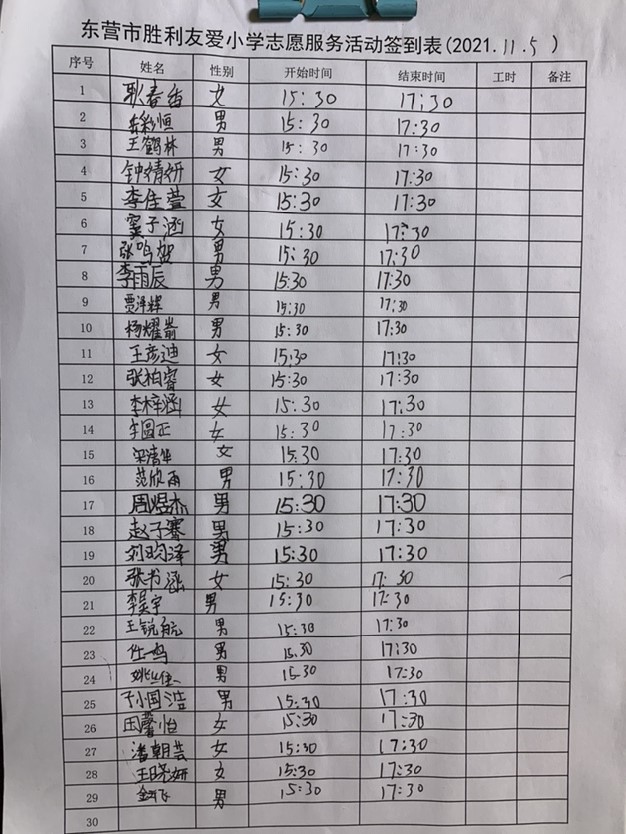 东营市胜利友爱小学志愿服务活动签到表(2021.11.5)
序号 姓名 性别 开始时间 结束时间 工时 备注
1 耿春雪 女 15:30 17:30
2 男 15:30 17:30
3 王鹤林 男 15:30 17:30
4 钟婧妍 女 15:30 17:30
5 李佳萱 女 15:30 17:30
6 窦子涵 女 15:30 17:30
7 张鸣贺 男 15:30 17:30
8 李雨辰 男 15:30 17:30
9 贾泽辉 男 15:30 17:30
10 杨耀嵛 男 15:30 17:30
11 王彦迪 女 15:30 17:30
12 张柏睿 女 15:30 17:30
13 李梓涵 女 15:30 17:30
14 女 15:30 17:30
15 女 15:30 17:30
16 范欣雨 男 15:30 17:30
17 周煜杰 男 15:30 17:30
18 赵子骞 男 15:30 17:30
19 刘昀泽 男 15:30 17:30
20 张书涵 女 15:30 17:30
21 李昊宇 男 15:30 17:30
22 王锐航 男 15:30 17:30
23 任鸣 男 15:30 17:30
24 男 15:30 17:30
25 孙国浩 男 15:30 17:30
26 田馨怡 女 15:30 17:30
27 潘朝芸 女 15:30 17:30
28 王晓妍 女 15:30 17:30
29 男 15:30 17:30
30